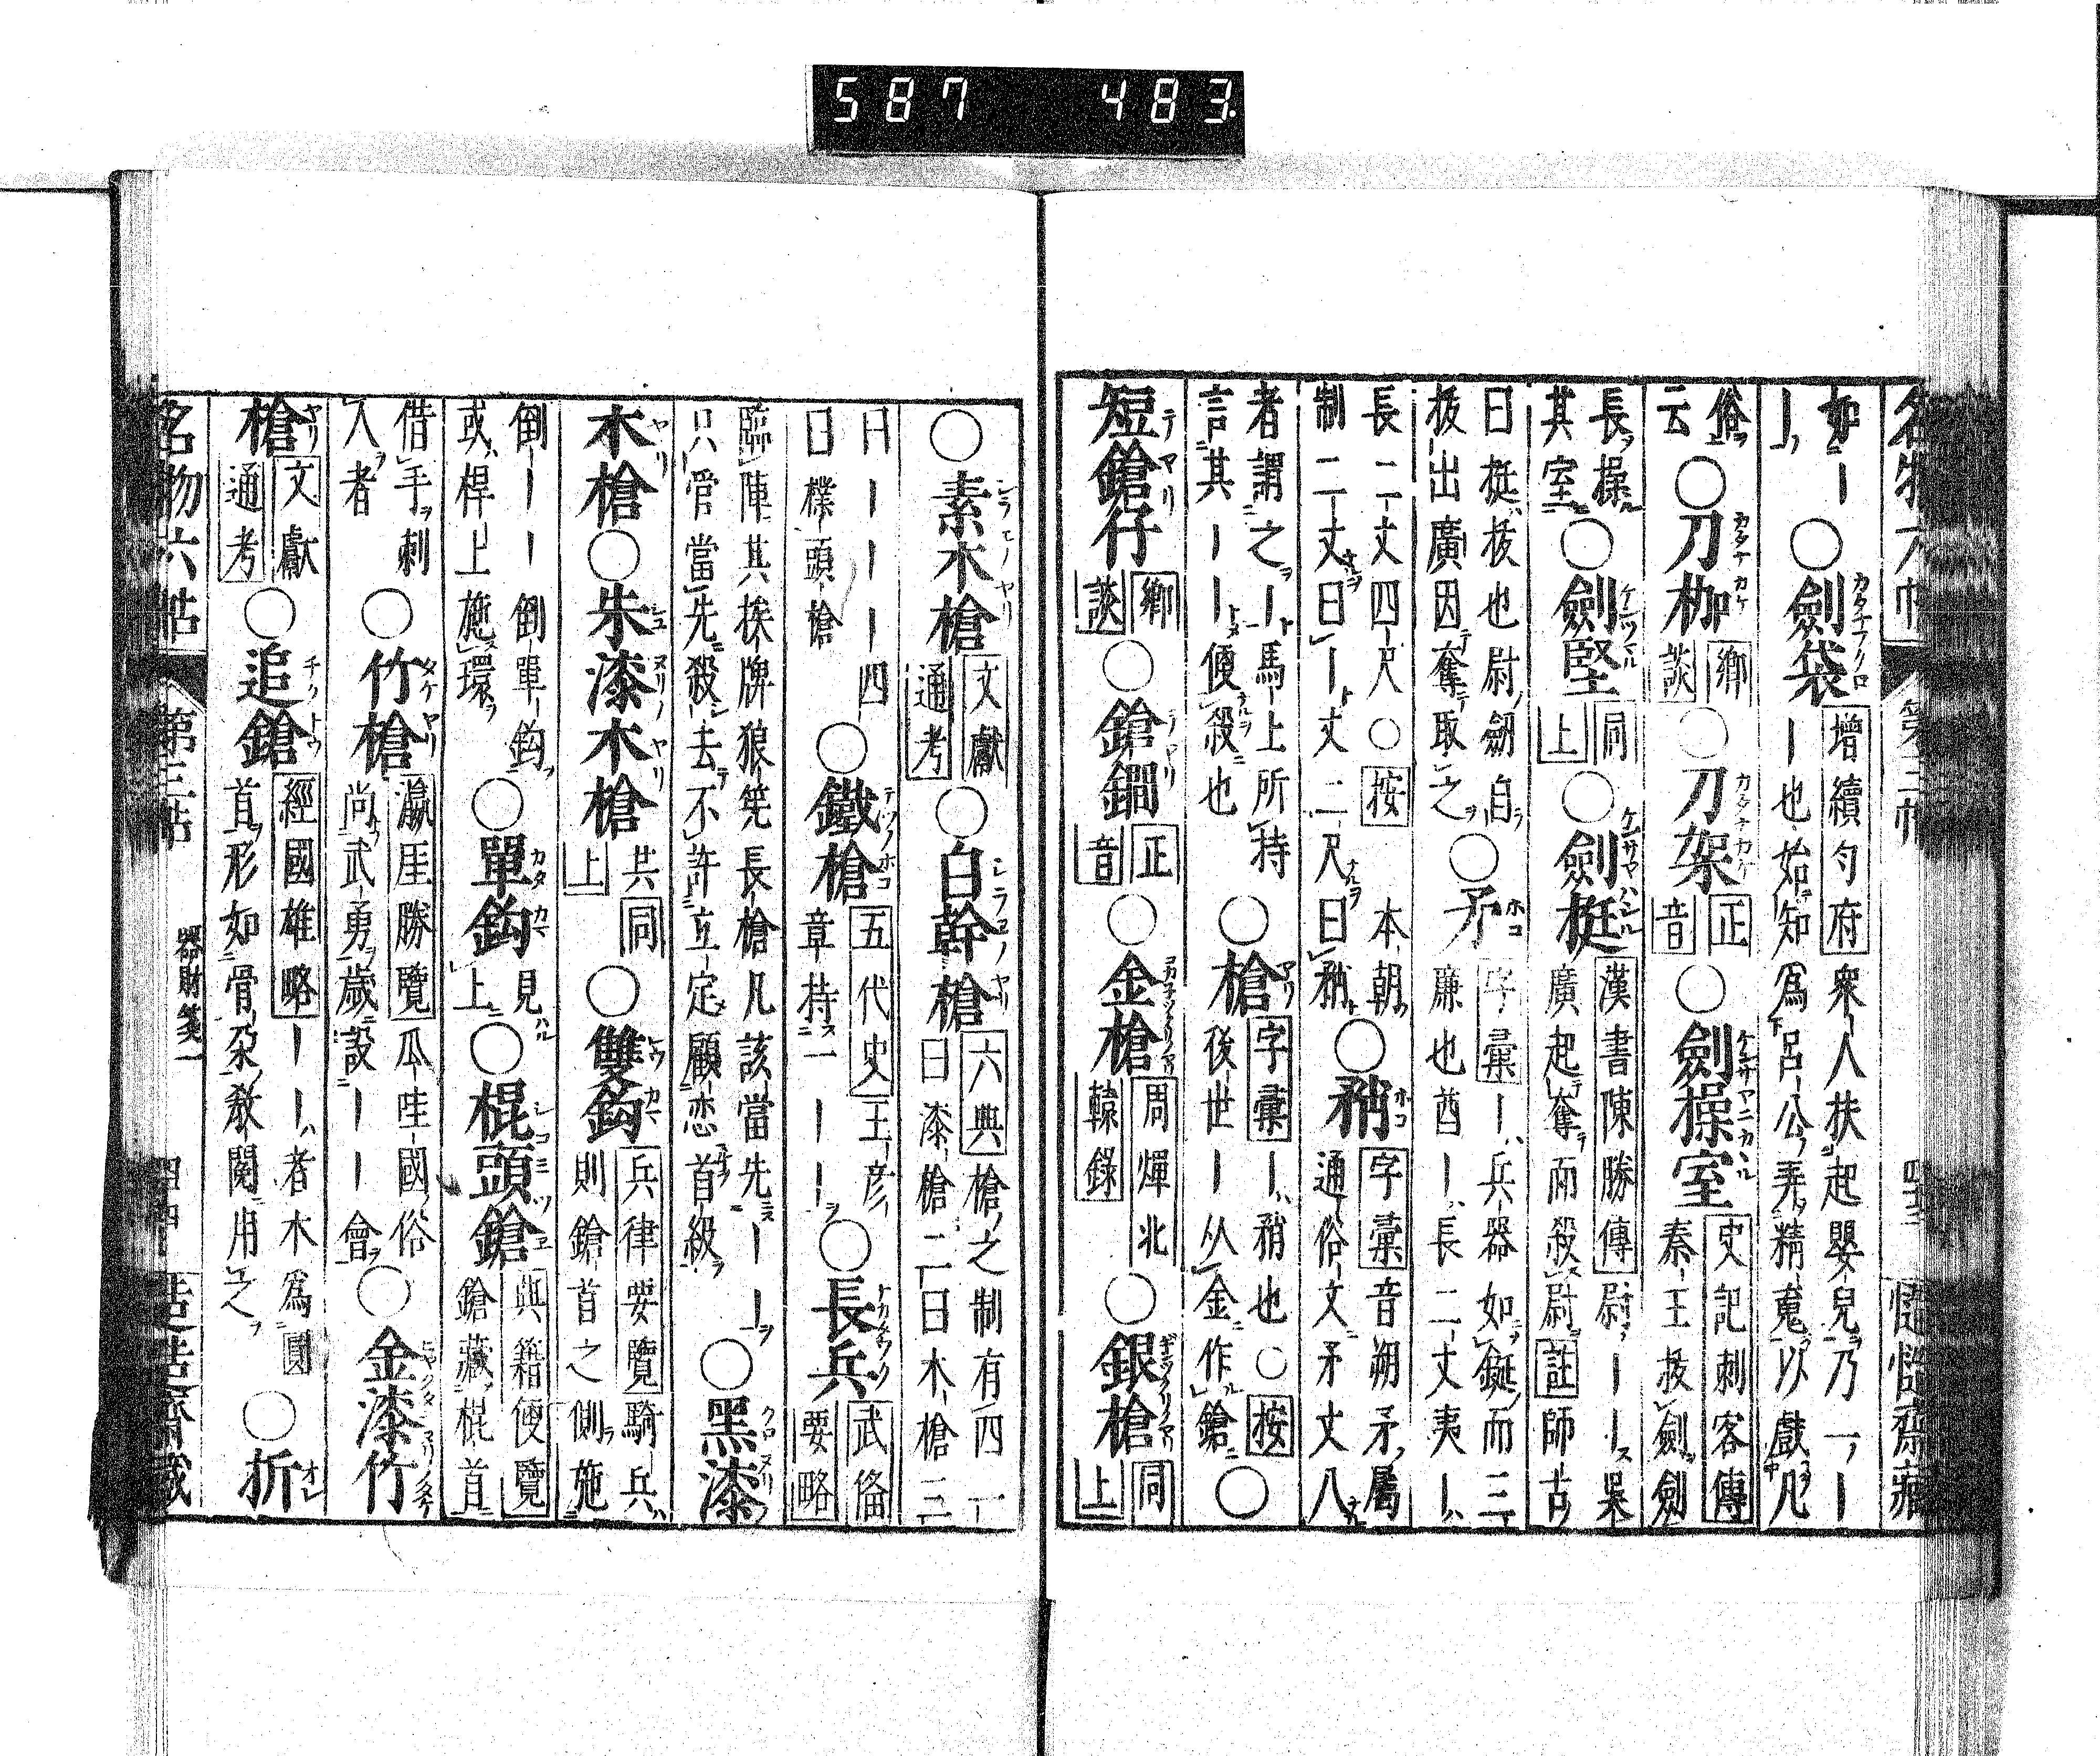 587 483.
名物六帖 第三帖 悟悟齋藏
如｜○劍袋 增續勻府 衆人扶起嬰兒乃一｜
｜也始知爲呂公弄精䰟以戲凡
俗○刀枷 鄉談 ○刀架 正音 ○劍操室 史記刺客傳
云 秦王拔劍劍
長操○劍堅 同上 ○劍挺 漢書陳勝傳 尉｜｜吳
其室 廣起奪而殺尉 註 師古
曰挺拔也尉劒自○矛 字彙 ｜兵器如鋋而三
拔出廣因奪取之 廉也酋｜長二丈夷｜
長二丈四尺○按 本朝○矟 字彙 音朔矛屬
制二丈曰｜丈二尺曰矟 通俗文矛丈八
者謂之｜馬上所持○槍 字彙 ｜矟也○按
言其｜｜便殺也 後世｜从金作鎗○
短鎗仔 鄉談 ○鎗鐧 正音 ○金槍 周煇北轅錄 ○銀槍 同上
○素木槍 文獻通考 ○白幹槍 六典 槍之制有四一
曰漆槍二曰木槍三
曰｜｜｜四○鐵槍 五代史 王彦○長兵 武備要略
曰樸頭槍 章持一｜｜
臨陣其挨牌狼筅長槍凡該當先｜｜○黑漆
只管當先殺去不許立定顧恋首級
木槍○朱漆木槍 共同上 ○雙鈎 兵律要覽 騎兵
則鎗首之側施
倒｜｜倒單鈎○單鈎 見上 ○棍頭鎗 典籍便覽
或桿上施環 鎗藏棍首
借手刺○竹槍 瀛厓勝覽 瓜哇國俗○金漆竹
入者 尚武勇歲設｜｜會
槍 文獻通考 ○追鎗 經國雄略 ｜｜者木爲圓○折
首形如骨朶敎閱用之
名物六帖 第三帖 器財箋一 四十四